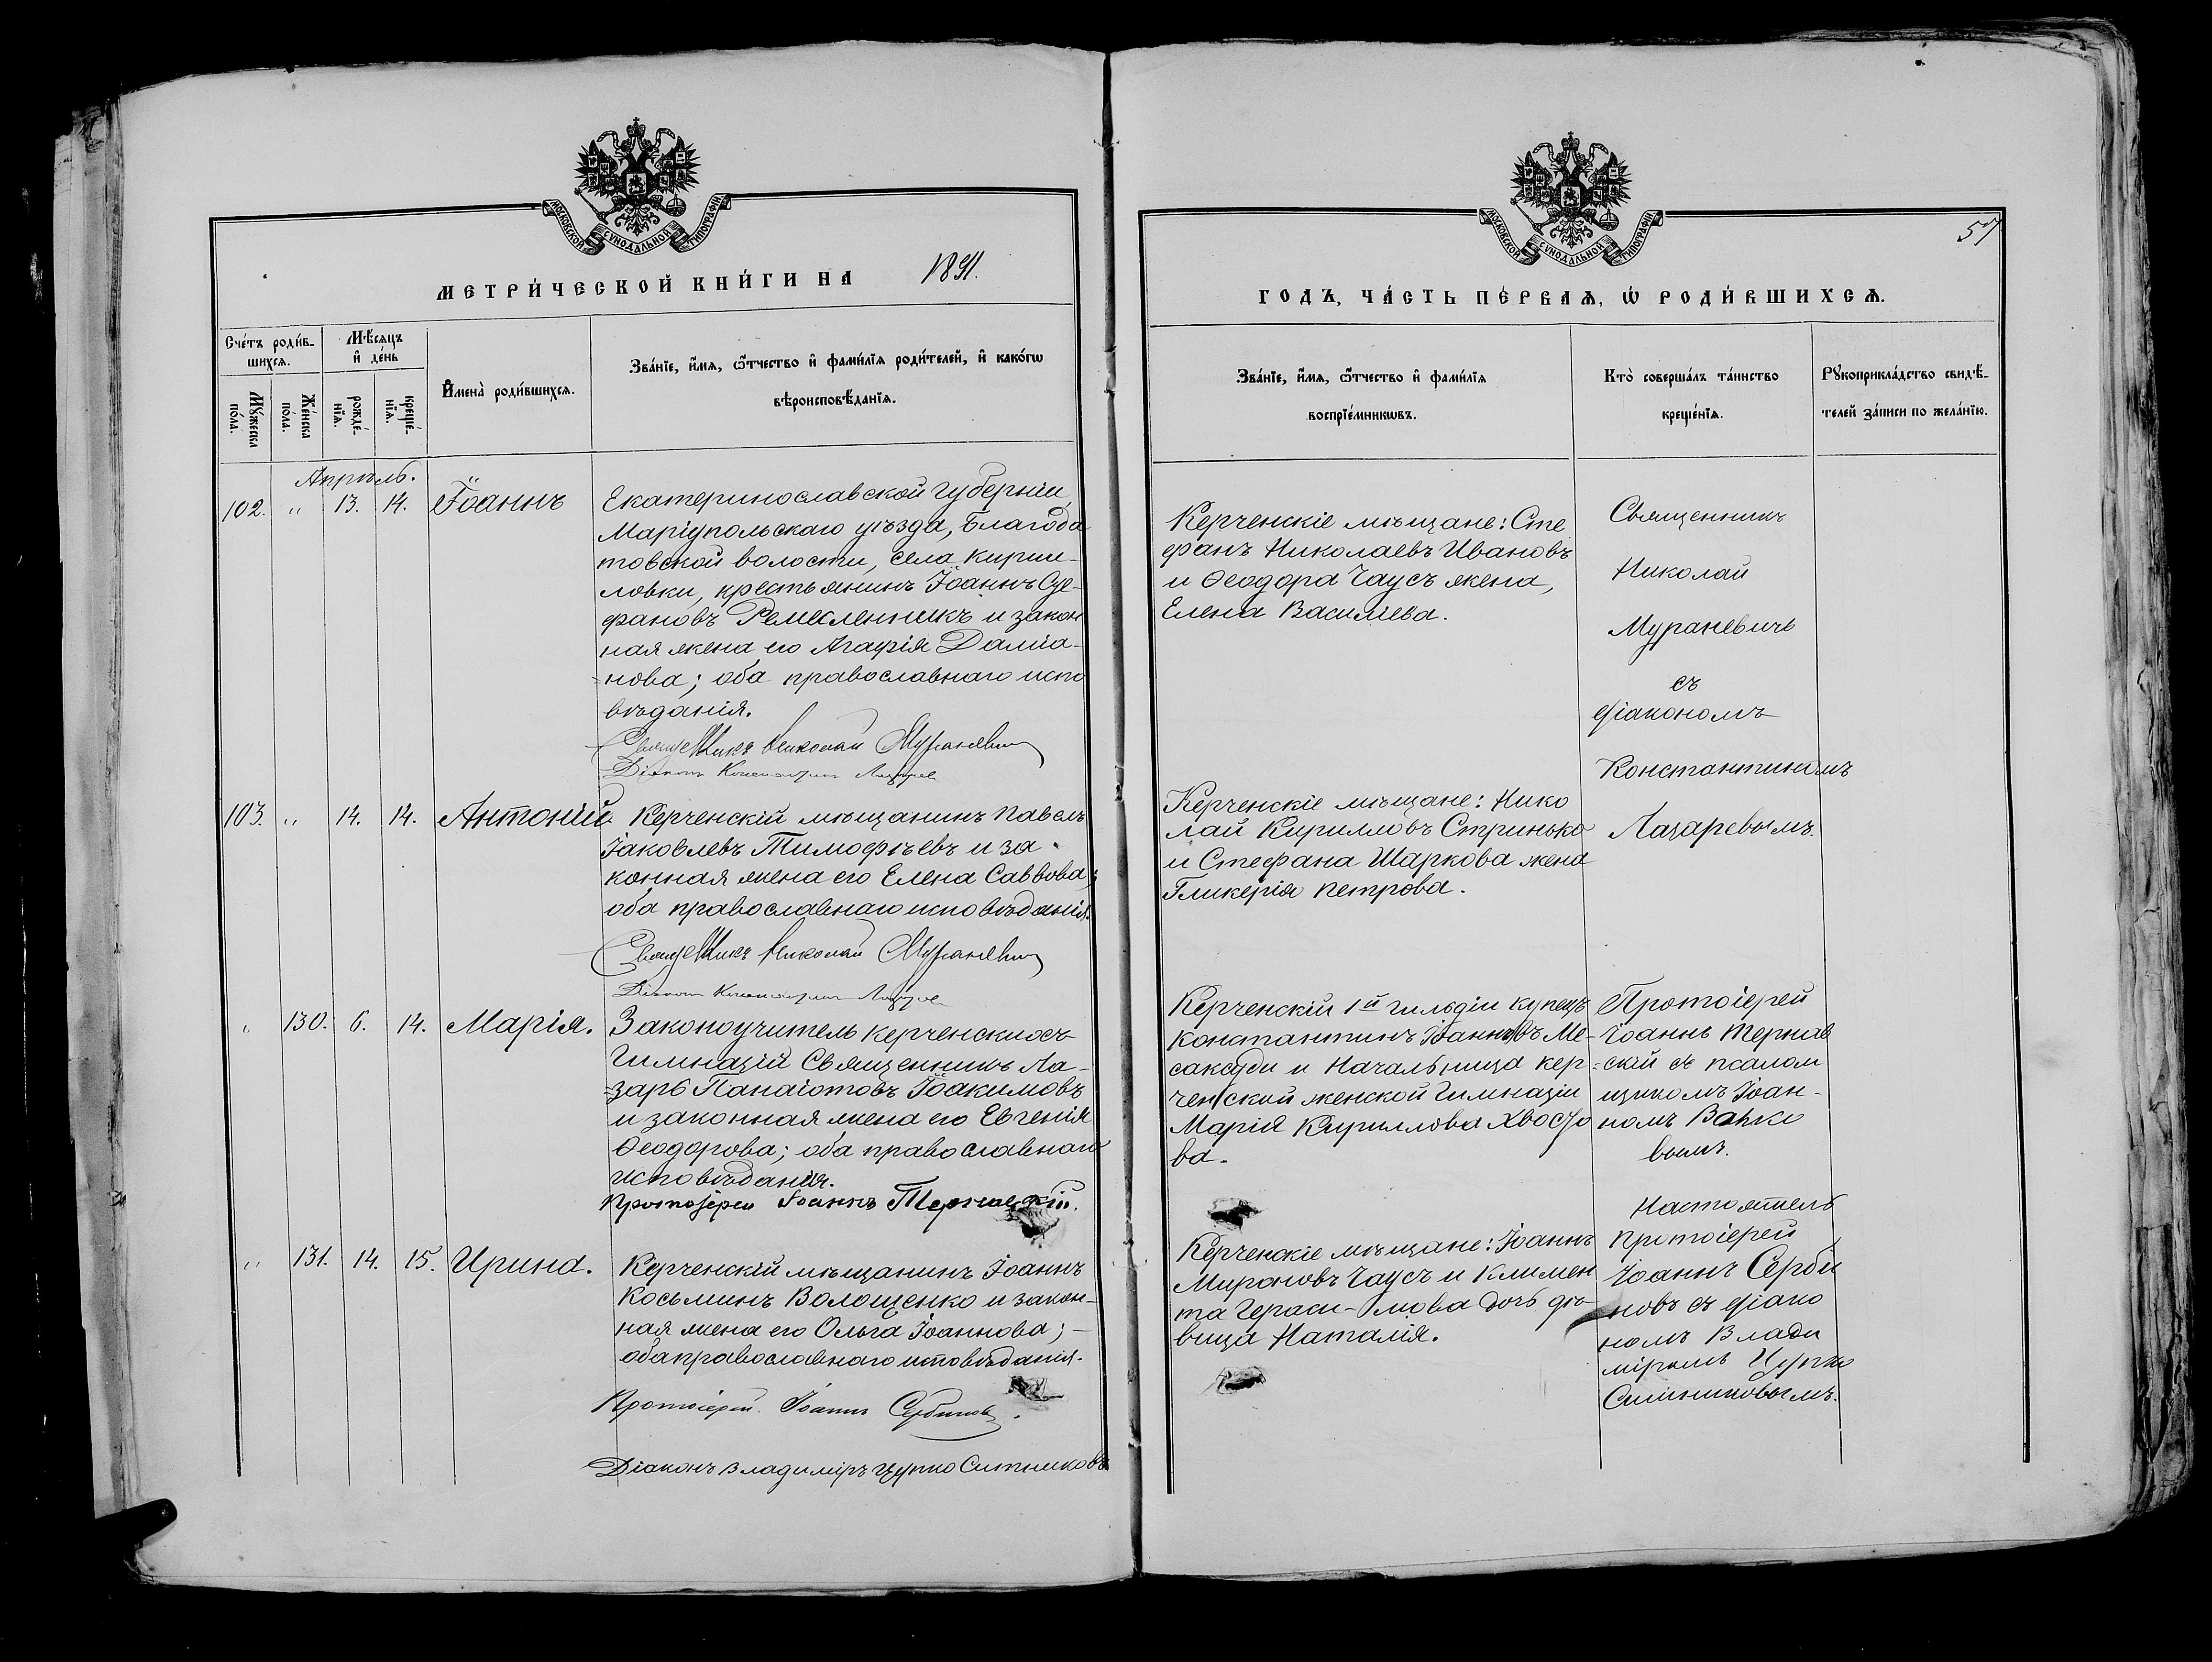 МОСКОВСКОЙ СУНОДАЛЬНОЙ ТИПОГРАФИИ
МЕТРИ́ЧЕСКОЙ КНИ́ГИ НА 1891.
Сче́тъ роди́в-
шихсѧ.
Мѣ́сѧцъ
и҆ де́нь
Мꙋ́жеска
по́ла.
Же́нска
по́ла.
рожде́-
нїѧ.
креще́-
нїѧ.
И҆мена̀ роди́вшихсѧ.
Зва́нїе, и҆́мѧ, ѻ҆́тчество и҆ фами́лїѧ роди́телей, и҆ како́гѡ
вѣроисповѣ́данїѧ.
Апрѣль.
102. " 13. 14. Іоаннъ
Екатеринославской губерніи,
Маріупольскаго уѣзда, Благода
товской волости, села Кирил-
ловки, крестьянинъ Іоаннъ Сте-
фановъ Ремесленникъ и закон
ная жена его Агафія Даміа-
нова; оба православнаго испо
вѣданія.
Священникъ Николай Мураневичъ
Діаконъ Константинъ Лазаревъ
103. " 14. 14. Антоній.
Керченскій мѣщанинъ Павелъ
Іаковлевъ Тимофѣевъ и за-
конная жена его Елена Саввова;
оба православнаго исповѣданія.
Священникъ Николай Мураневичъ
Діаконъ Константинъ Лазаревъ
" 130. 6. 14. Марія.
Законоучитель Керченскихъ
Гимназій Священникъ Ла-
зарь Панаіотовъ Іоакимовъ
и законная жена его Евгенія
Ѳеодорова; оба православнаго
исповѣданія.
Протоіерей Іоаннъ Тернавскій.
" 131. 14. 15. Ирина.
Керченскій мѣщанинъ Іоаннъ
Косьминъ Волощенко и закон-
ная жена его Ольга Іоаннова;-
оба православнаго исповѣданія.
Протоіерей Іоаннъ Сербиновъ.
Діаконъ Владиміръ Цупко Ситниковъ
МОСКОВСКОЙ СУНОДАЛЬНОЙ ТИПОГРАФИИ
57
ГОДЪ, ЧА́СТЬ ПЕ́РВАѦ, Ѡ҆ РОДИ́ВШИХСѦ.
Зва́нїе, и҆́мѧ, ѻ҆́тчество и҆ фами́лїѧ
воспрїе́мникѡвъ.
Кто̀ соверша́лъ та́инство
креще́нїѧ.
Рꙋкоприкла́дство свидѣ́-
телей за́писи по жела́нїю.
Керченскіе мѣщане: Сте
фанъ Николаевъ Ивановъ
и Ѳеодора Чаусъ жена,
Елена Василиева.
Священникъ
Николай
Мураневичъ
съ
діакономъ
Константиномъ
Лазаревымъ.
Керченскіе мѣщане: Нико
лай Кирилловъ Стринько
и Стефана Шаркова жена
Гликерія Петрова.
Керченскій 1й гильдіи купецъ
Константинъ Іоанновъ Ме-
саксуди и Начальница Кер-
ченской женской Гимназіи
Марія Кириллова Хвосто
ва.
Протоіерей
Іоаннъ Тернав
скій съ псалом
щикомъ Іоан-
номъ Ванко
вымъ.
Керченскіе мѣщане: Іоаннъ
Мироновъ Чаусъ и Климен
та Гераси-мова дочь дѣ-
вица Наталія.
Настоятель
Протоіерей
Іоаннъ Серби
новъ съ діако
номъ Влади
міромъ Цупко
Ситниковымъ.